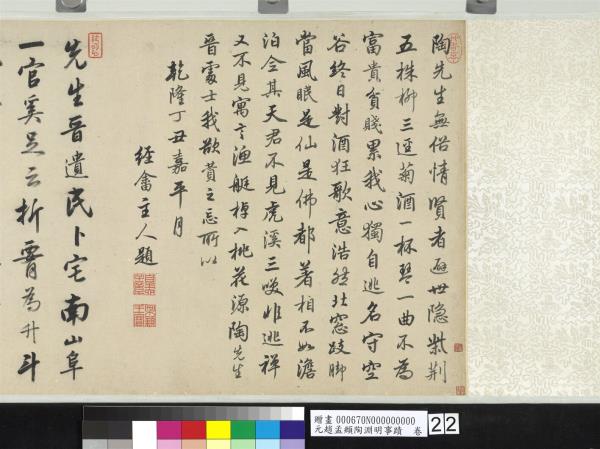 陶先生無俗情賢者避世隐柴荆
五株柳三逕菊酒一杯琴一曲不為
富貴貧賤累我心獨自逃名守空
谷終日對酒狂歌意浩然北窓跂脚
當風眠是仙是佛都著相不如澹
泊全其天君不見虎溪三咲非逃禅
又不見寓言漁艇棹入桃花源陶先生
晉處士我欲賛之忘所以
乾隆丁丑嘉平月
經畬主人題
先生晉遺民卜宅南山阜
一官奚足云折腰為升斗
贈畫 000670N000000000
元趙孟頫陶淵明事蹟 卷
22